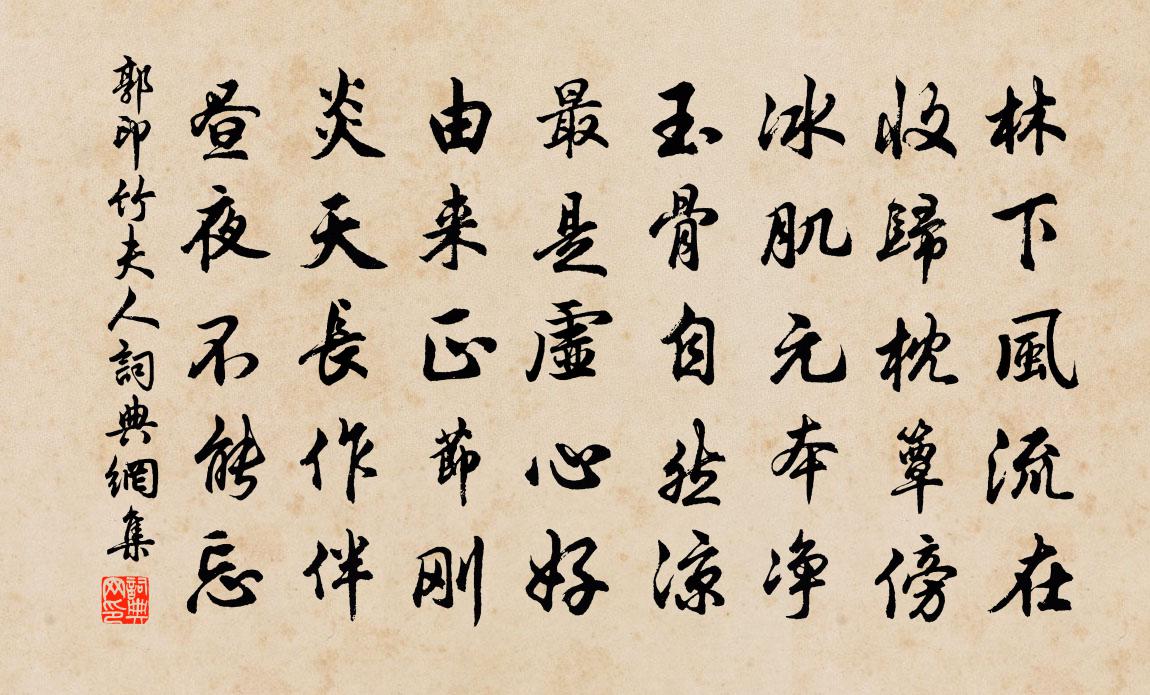 林下風流在
收歸枕簟傍
冰肌元本净
玉骨自然涼
最是虛心好
由来正節刚
炎天長作伴
昼夜不能忘
郭印竹夫人詞典網集
詞典网印